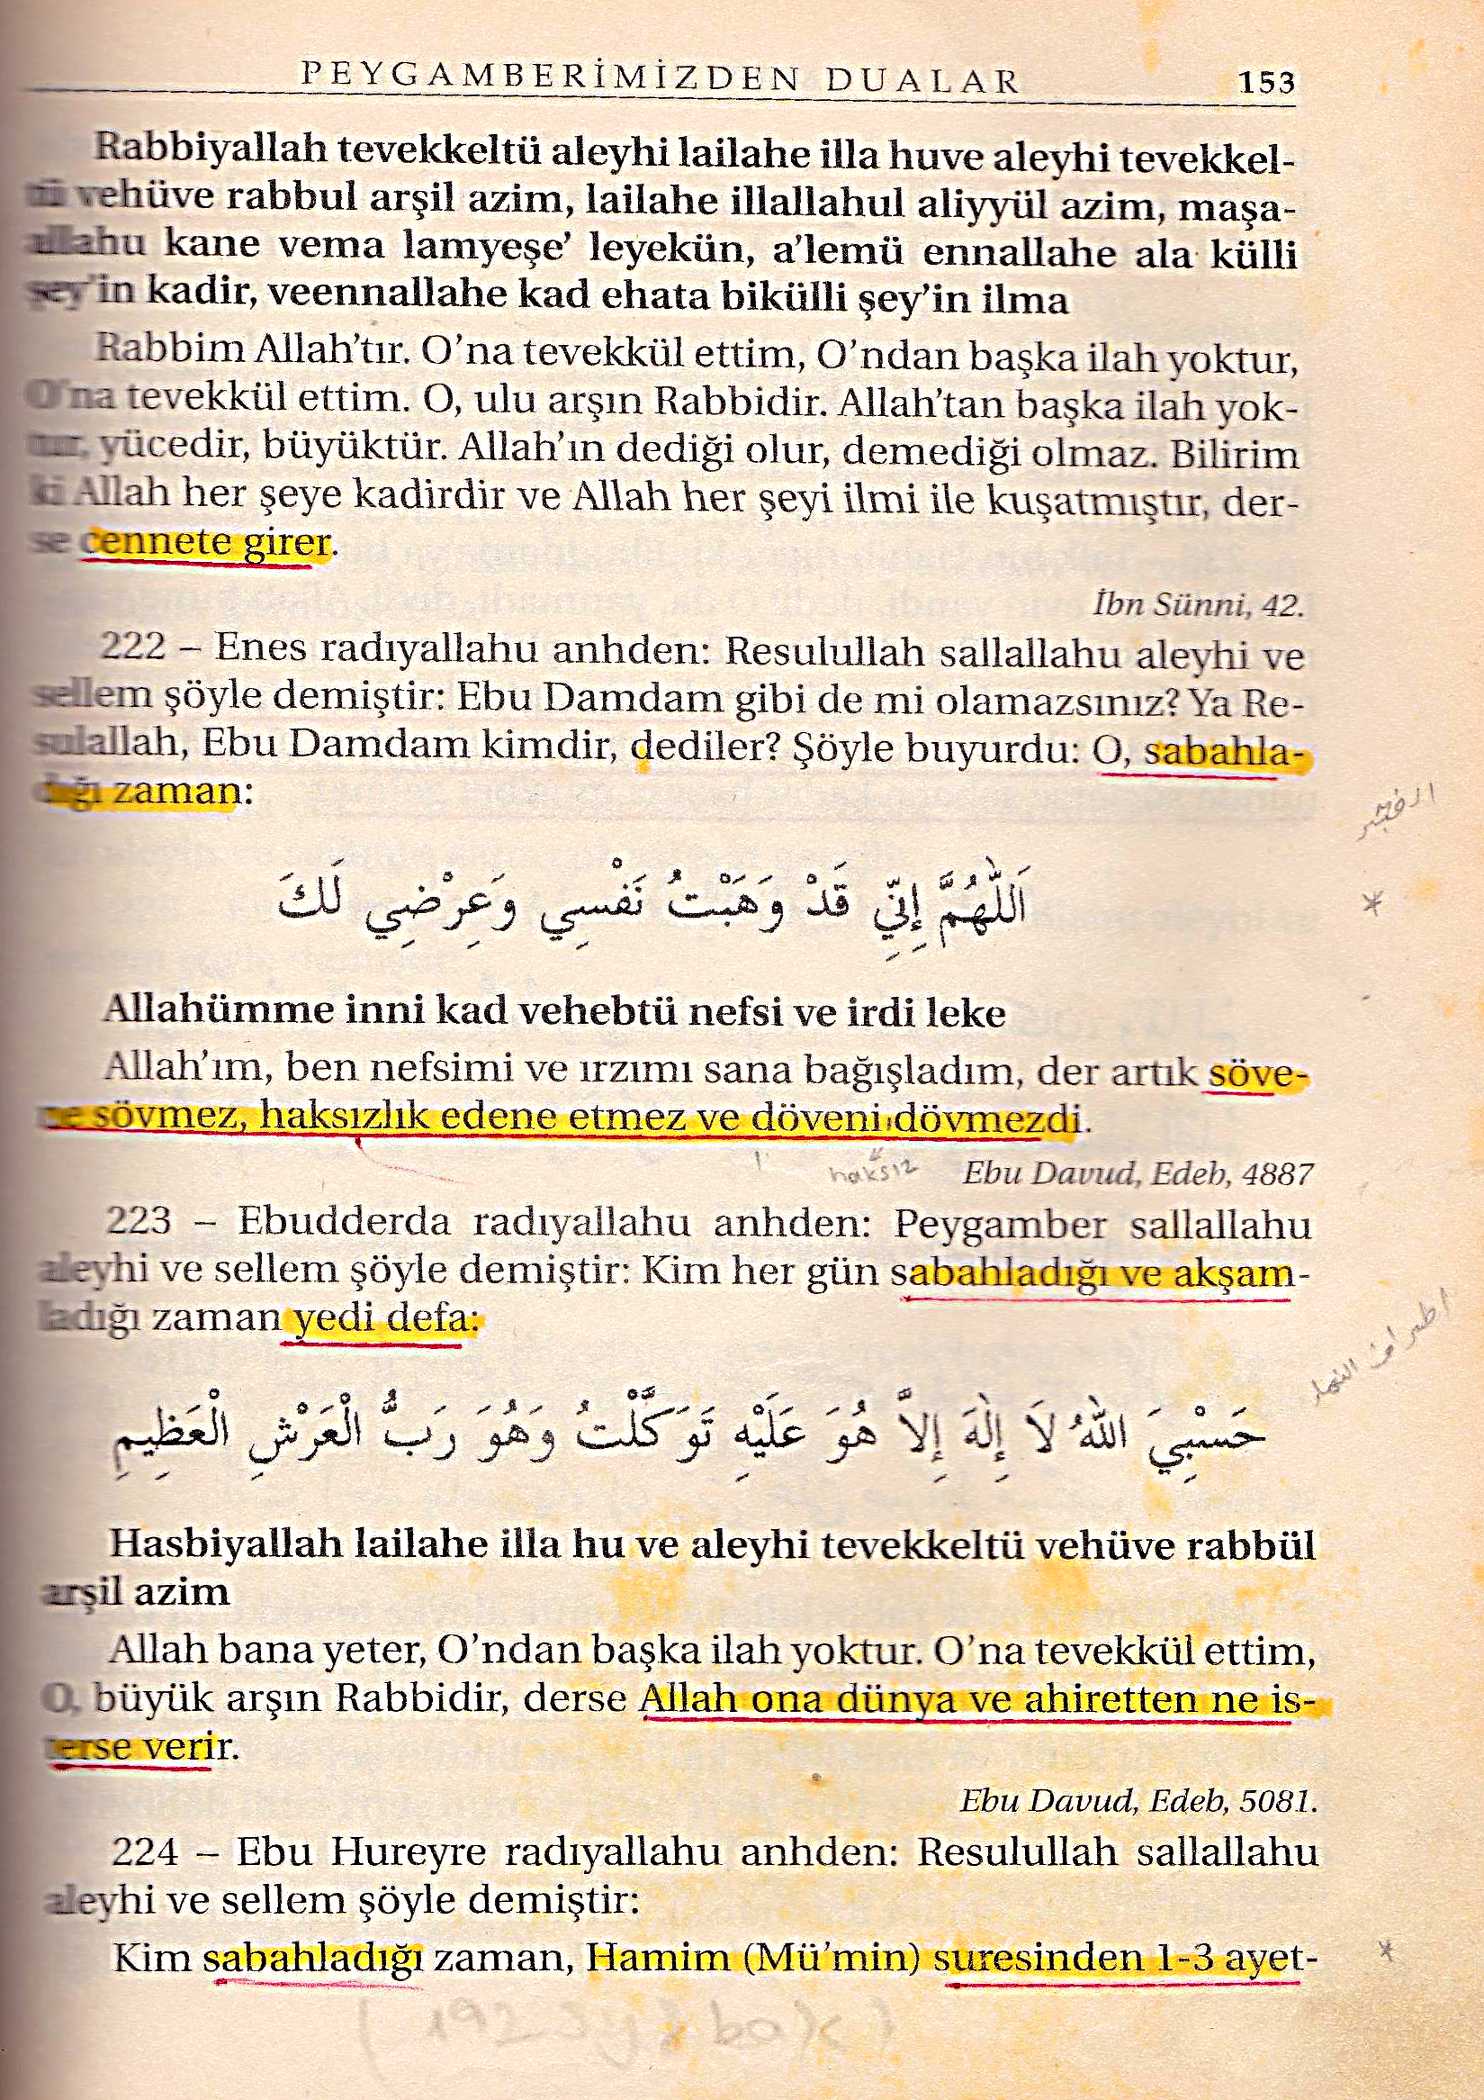 PEYGAMBERİMİZDEN DUALAR 153
Rabbiyallah tevekkeltü aleyhi lailahe illa huve aleyhi tevekkel-
tü vehüve rabbul arşil azim, lailahe illallahul aliyyül azim, maşa-
allahu kane vema lamyeşe’ leyekün, a’lemü ennallahe ala külli
şey’in kadir, veennallahe kad ehata bikülli şey’in ilma
Rabbim Allah’tır. O’na tevekkül ettim, O’ndan başka ilah yoktur,
O’na tevekkül ettim. O, ulu arşın Rabbidir. Allah’tan başka ilah yok-
tur, yücedir, büyüktür. Allah’ın dediği olur, demediği olmaz. Bilirim
ki Allah her şeye kadirdir ve Allah her şeyi ilmi ile kuşatmıştır, der-
se cennete girer.
İbn Sünni, 42.
222 – Enes radıyallahu anhden: Resulullah sallallahu aleyhi ve
sellem şöyle demiştir: Ebu Damdam gibi de mi olamazsınız? Ya Re-
sulallah, Ebu Damdam kimdir, dediler? Şöyle buyurdu: O, sabahla-
dığı zaman:
اَللّٰهُمَّ إِنِّي قَدْ وَهَبْتُ نَفْسِي وَعِرْضِي لَكَ
*
Allahümme inni kad vehebtü nefsi ve irdi leke
Allah’ım, ben nefsimi ve ırzımı sana bağışladım, der artık söve-
ne sövmez, haksızlık edene etmez ve döveni dövmezdi.
haksız
Ebu Davud, Edeb, 4887
223 – Ebudderda radıyallahu anhden: Peygamber sallallahu
aleyhi ve sellem şöyle demiştir: Kim her gün sabahladığı ve akşam-
ladığı zaman yedi defa:
اطراف النهار
حَسْبِيَ اللّٰهُ لَا إِلٰهَ إِلاَّ هُوَ عَلَيْهِ تَوَكَّلْتُ وَهُوَ رَبُّ الْعَرْشِ الْعَظِيمِ
Hasbiyallah lailahe illa hu ve aleyhi tevekkeltü vehüve rabbül
arşil azim
Allah bana yeter, O’ndan başka ilah yoktur. O’na tevekkül ettim,
O, büyük arşın Rabbidir, derse Allah ona dünya ve ahiretten ne is-
terse verir.
Ebu Davud, Edeb, 5081.
224 – Ebu Hureyre radıyallahu anhden: Resulullah sallallahu
aleyhi ve sellem şöyle demiştir:
Kim sabahladığı zaman, Hamim (Mü’min) suresinden 1-3 ayet-
*